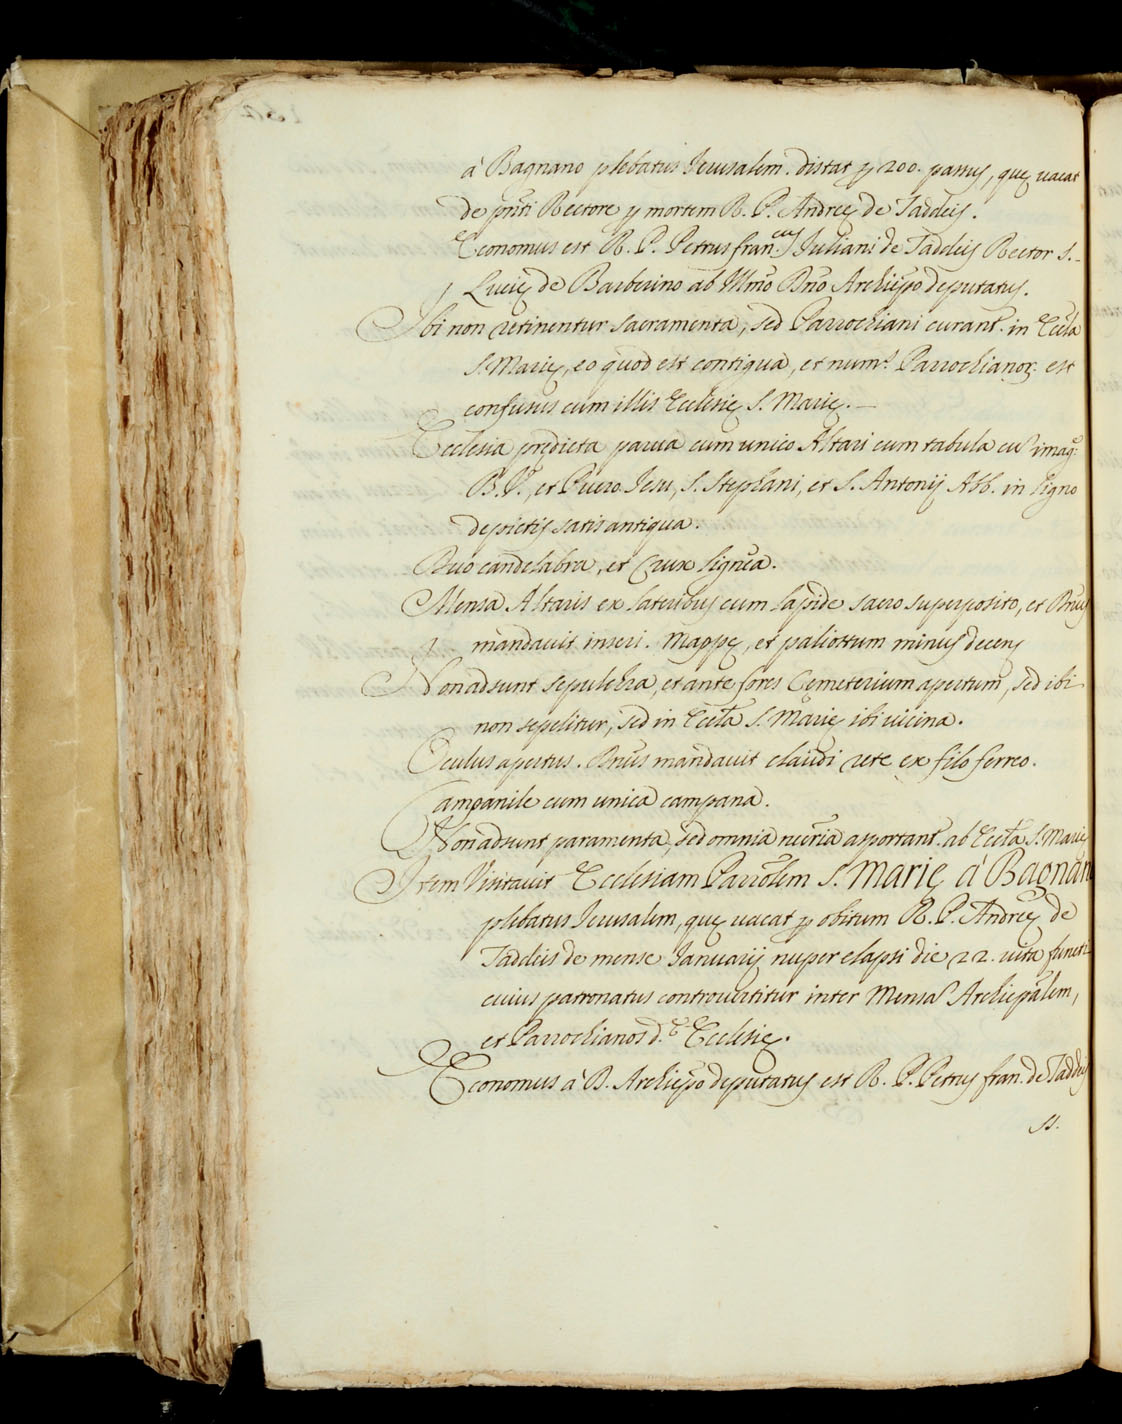 à Bagnano plebatus Jerusalem. distat p 200. passus, quę uacat
de pñti Rectore p mortem R. P. Andreę de Taddeis.
Economus est R. P. Petrus fran.cus Juliani de Taddeis Rector S.
Lucię de Barberino ab Illmo Dno Archiepo deputatus.
Ibi non retinentur sacramenta, sed Parrochiani curant. in Eccla
S. Marię, eo quod est contigua, et num.s Parrochianoꝝ est
confusus cum illis Ecclesię S. Marię.
Ecclesia prędicta parua cum unico Altari cum tabula cū imag:
B. V., et Puero Jesu, S. Stephani, et S. Antonij Abb. in ligno
depictis satis antiqua.
Duo candelabra, et Crux lignea.
Mensa Altaris ex lateribus cum lapide sacro superposito, et Dnus
mandauit inseri. Mappę, et paliottum minus decens
Non adsunt sepulchra, et ante fores Cęmeterium apertum, sed ibi
non sepelitur, sed in Eccla S. Marię ibi uicina.
Oculus apertus. Dnus mandauit claudi rete ex filo ferreo.
Campanile cum unica campana.
Non adsunt paramenta, sed omnia necria asportant. ab Eccla S. Marię
Item Visitauit Ecclesiam Parrolem S. Marię à Bagnan
plebatus Jerusalem, quę uacat p obitum R. P. Andreę de
Taddeis de mense Januarij nuper elapsi die 22. uita funct
cuius patronatus controuertitur inter Mensā Archiepalem,
et Parrochianos d.ę Ecclesię.
Economus à D. Archiepo deputatus est R. P. Petrus fran. de Taddeis